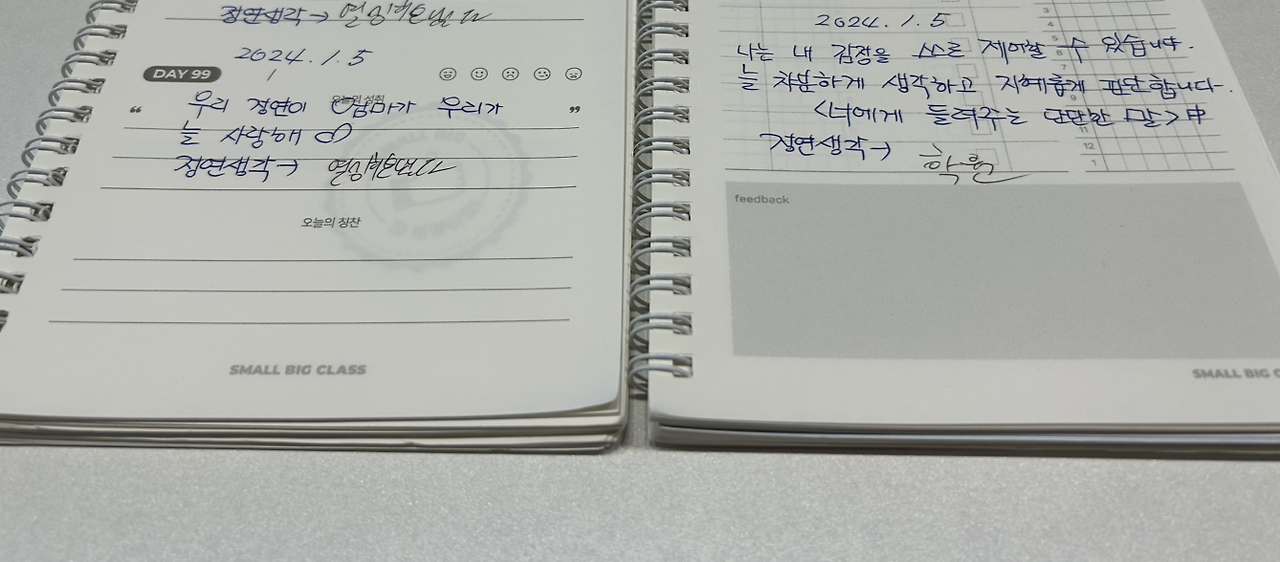 정연생각→
2024.1.5
DAY 99
오늘의 성취
“ 우리 정연이 엄마가 우리가 ”
늘 사랑해
정연생각→
오늘의 칭찬
SMALL BIG CLASS
2024.1.5
나는 내 감정을 스스로 제어할 수 있습니다.
늘 차분하게 생각하고 지혜롭게 판단합니다.
<너에게 들려주는 단단한 말>中
정연생각→ 확인
3
4
5
6
7
9
11
12
1
feedback
SMALL BIG C